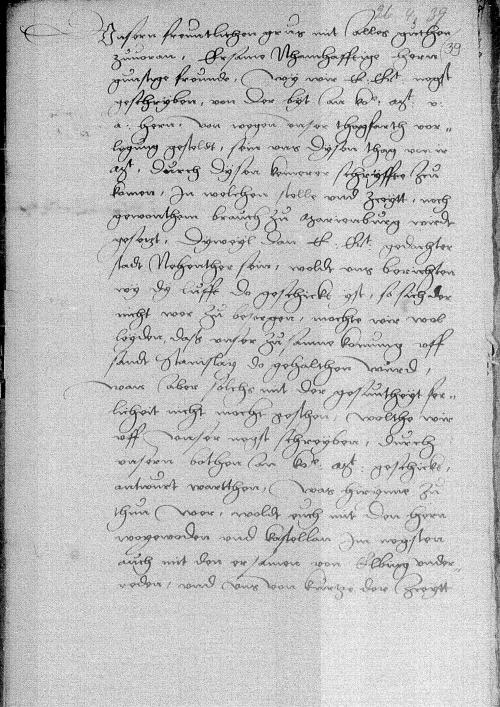 26 9 39
39
Unsern freuntlichen grus mit alles guethen
zuvoran, Ersame Nhamhafftige hern
gunstige freunde, Wy wir E. Ert. negst
geschryben, von der byt an ko. Mt. u.
a. hern, von wegen unser thagfarth vor-
legung gesteldt, sein uns dysen thag von ir
Mt. durch dysen komerer schryffte zcu
komen, In welchen stelle und zceytt, noch
gewonthem brauch zu Marienburg wirdt
gesetzt, Dyweyl dan E. Ert. gedachter
stadt Nehenther sein, woldt uns berichten
wy dy lufft do geschickt yst, so sach der
nicht wer zu besorgen, mochte wir wol
leyden, das unser zusamne komung uff
sandt Stanislay do gehalthen wurd,
wan aber solchs mit der gesuntheyt fer-
licheit nicht mocht geschen, wolthe wir
uff unser negst schreyben, durch
unsern bothen an ko. Mt. geschickt,
antwurt wartthen, Was hirynne zu
thun wer, woldt euch mit den hern
woywoden und Kastellan Im negsten
auch mit den ersamen von Elbing under-
reden, und uns von kurtze der zceytt